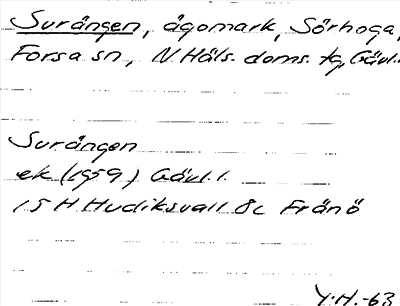 Surängen, ägomark, Sörhoga,
Forsa sn, N. Häls. doms. tg, Gävl.
Surängen
ek (1959) Gävl. l.
15 H Hudiksvall 8c Fränö
Y.H.-63